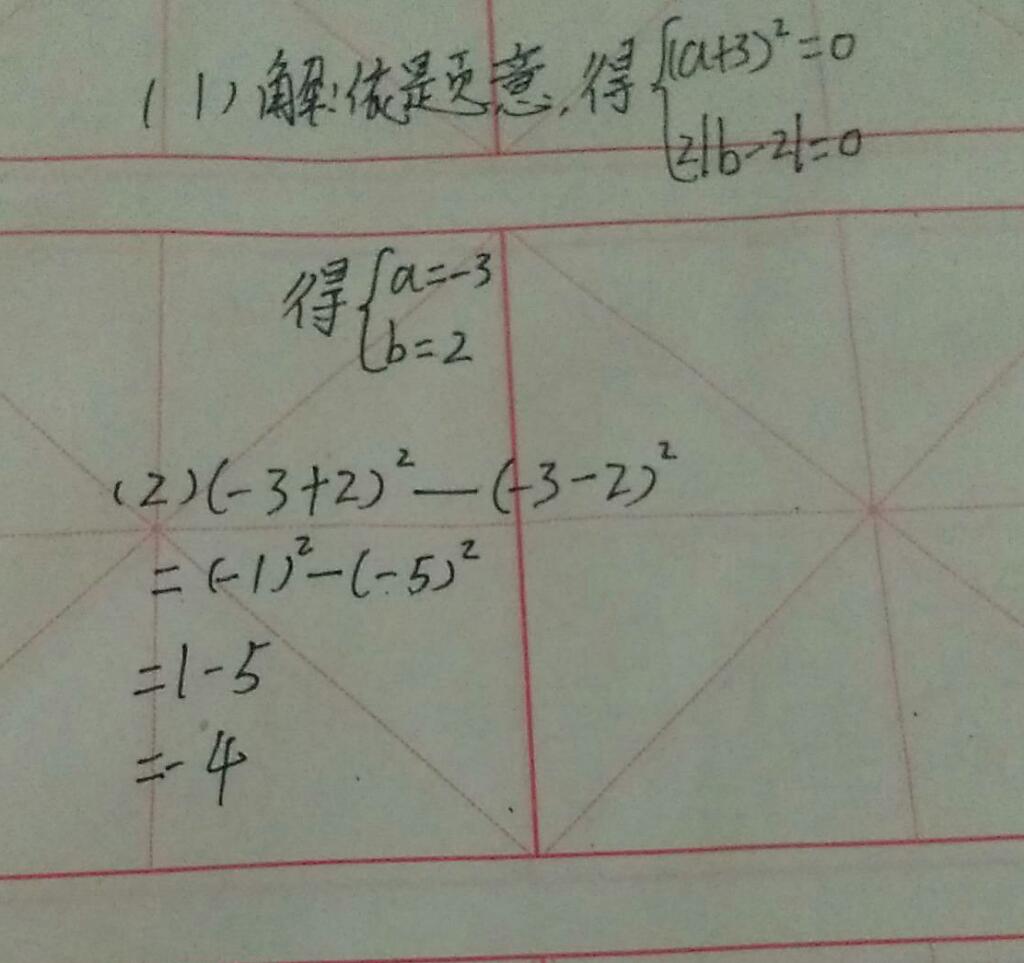 (1)解:依题意,得{(a+3)²=0
2|b-2|=0
得{a=-3
b=2
(2)(-3+2)²-(-3-2)²
=(-1)²-(-5)²
=1-5
=-4